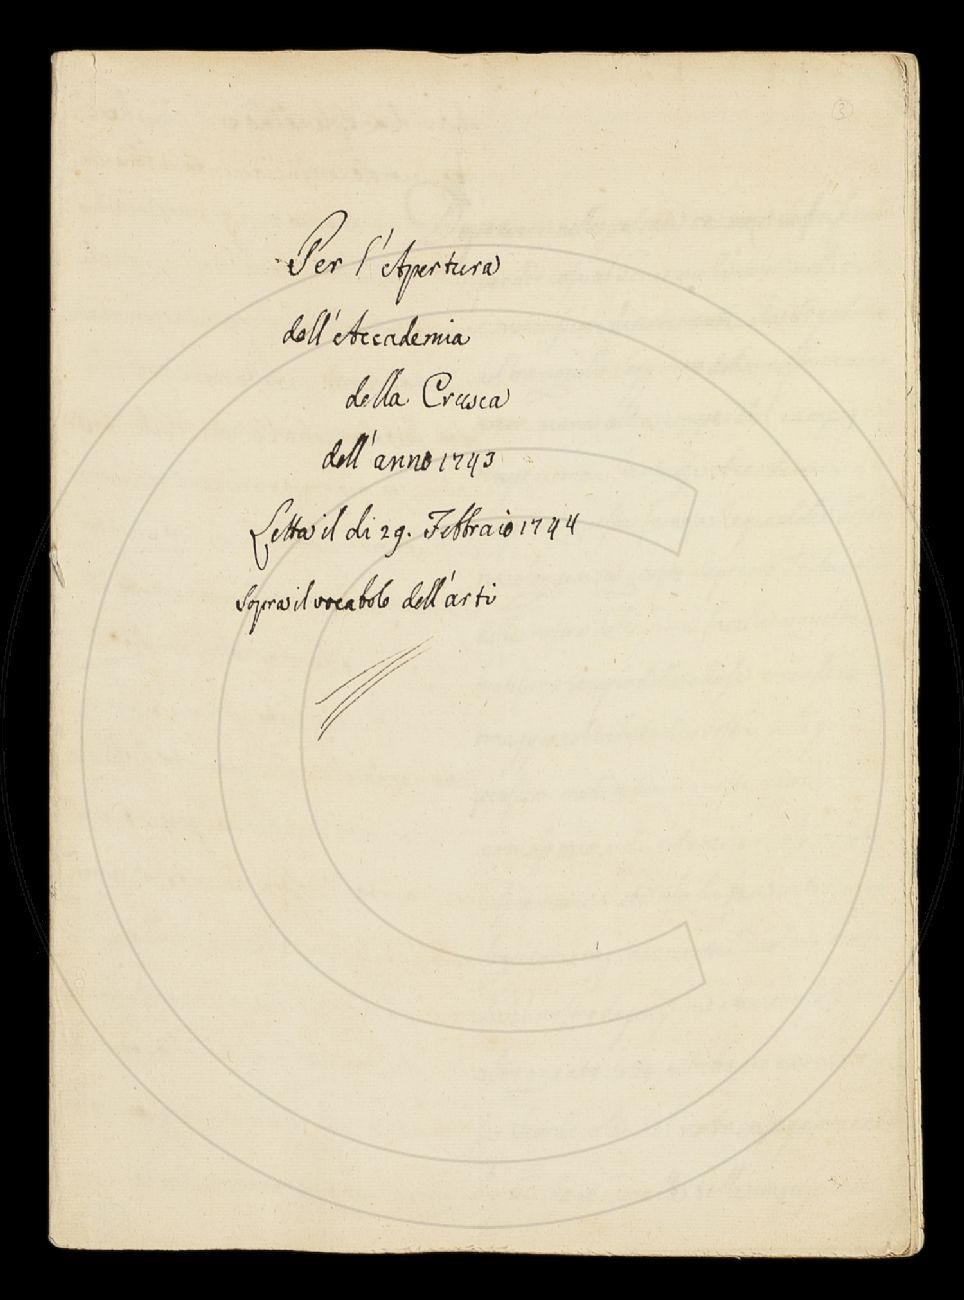 3
Per l'Apertura
dell'Accademia
della Crusca
dell'anno 1743
Letta il di 29. Febbraio 1744
Sopra il vocabolo dell'arti